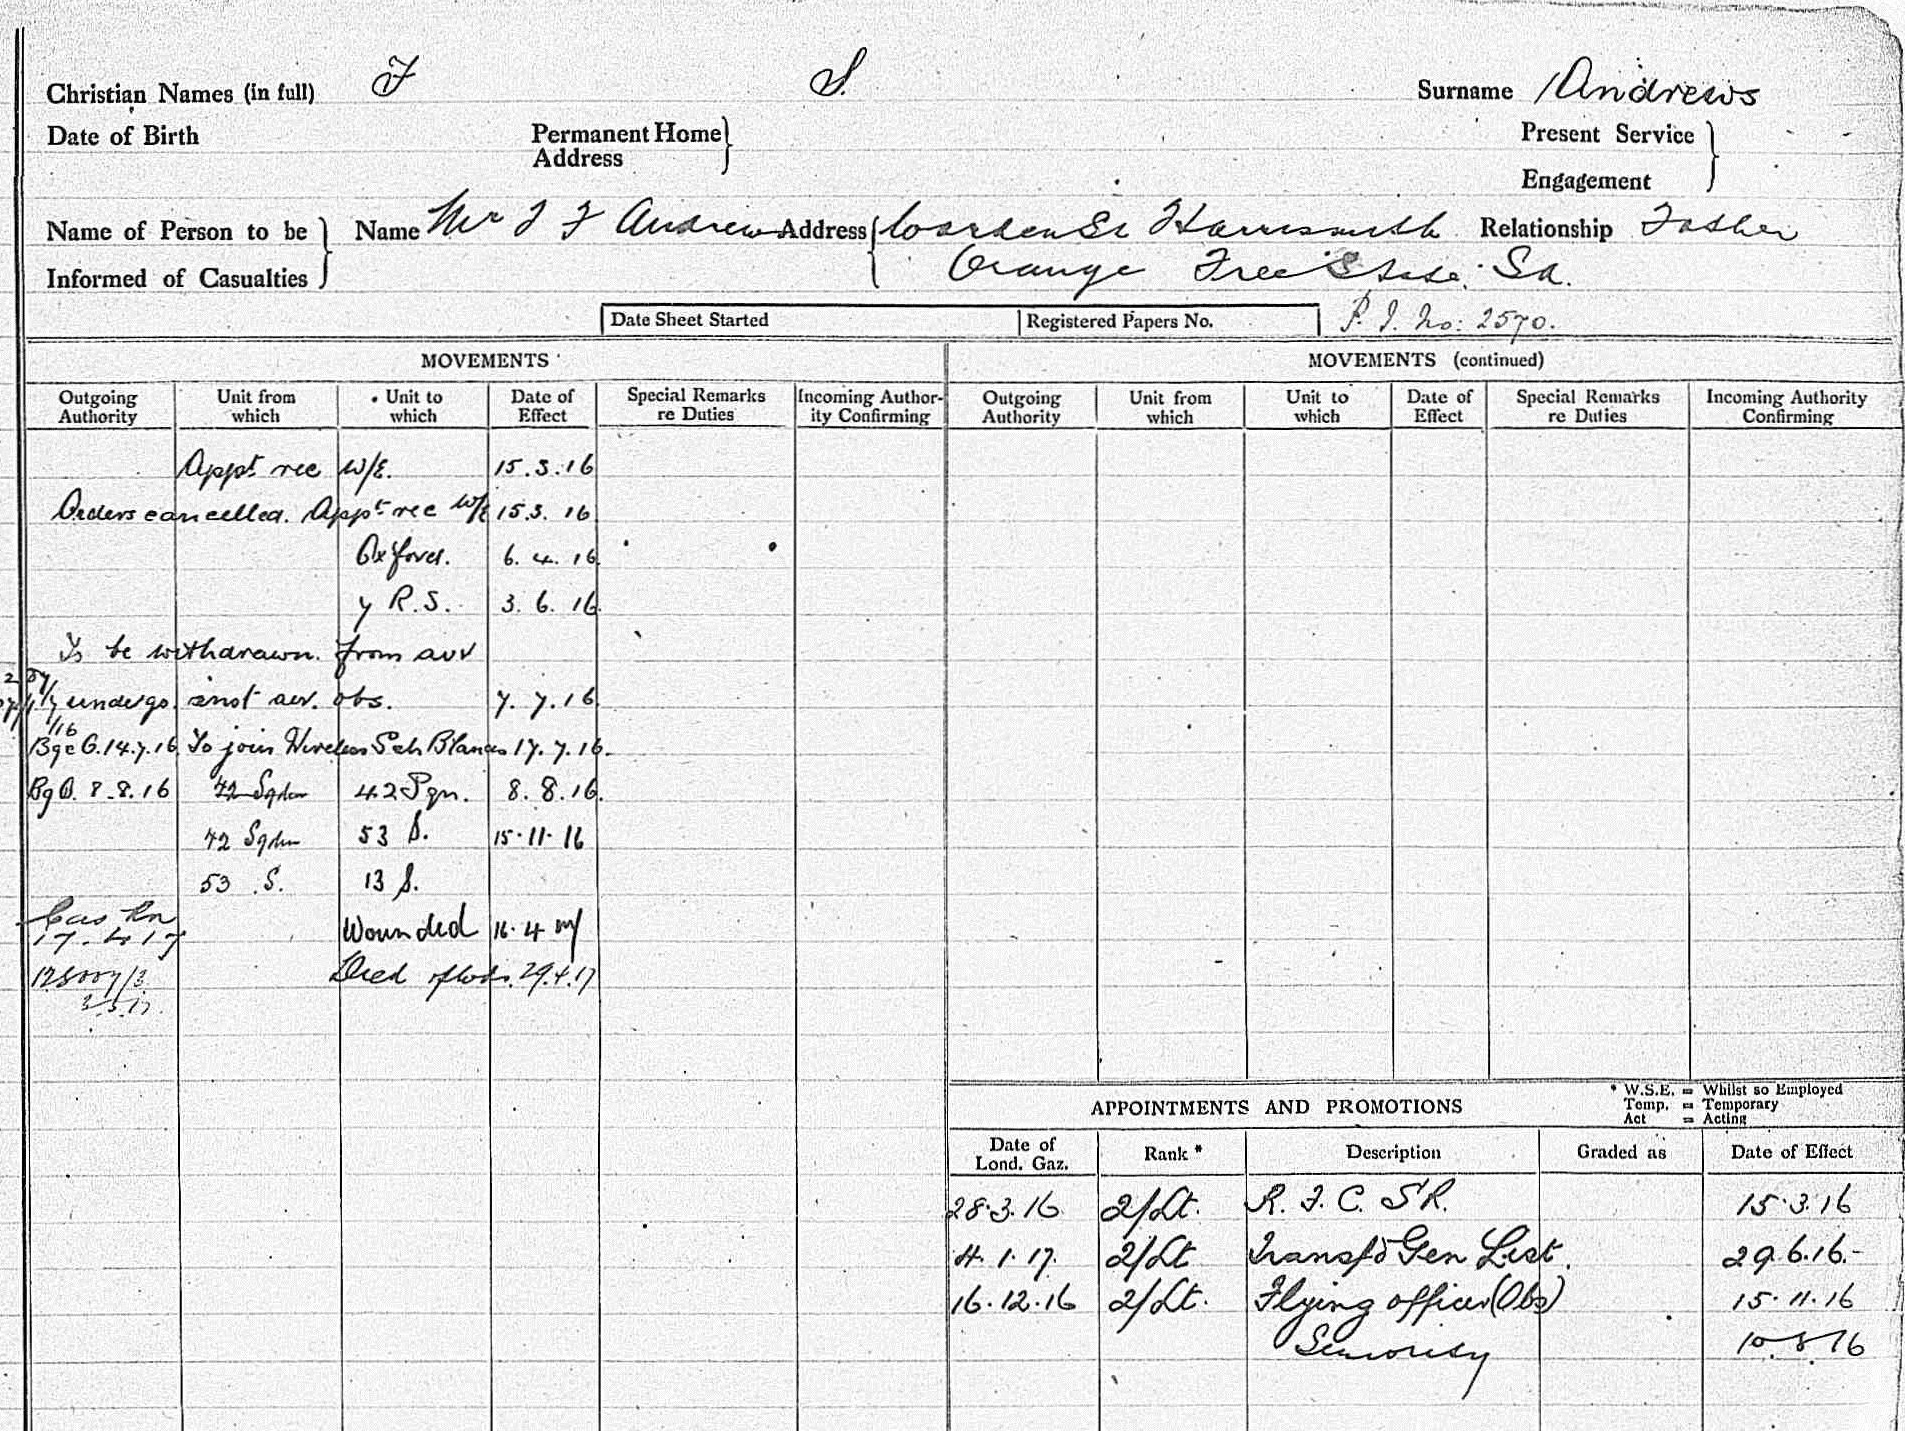 Christian Names (in full) F S. Surname Andrews
Date of Birth Permanent Home Address Present Service
Engagement
Name of Person to be Informed of Casualties Name Mr J F Andrews Address Warden St Harrismith Relationship Father
Orange Free State. SA.
Date Sheet Started Registered Papers No. P. I. No: 2570.
MOVEMENTS MOVEMENTS (continued)
Outgoing Authority Unit from which Unit to which Date of Effect Special Remarks re Duties Incoming Authority Confirming Outgoing Authority Unit from which Unit to which Date of Effect Special Remarks re Duties Incoming Authority Confirming
Appt rec W/E. 15.3.16
Orders cancelled. Appt rec W/E 15.3.16
Oxford. 6.4.16
7 R.S. 3.6.16.
To be withdrawn. from avv
undergo inst aer. obs. 7.7.16
Bge O. 14.7.16 To join Wireless Sch 17.7.16.
Bg O. 8.8.16 42 Sqdn 42 Sqn. 8.8.16.
42 Sqdn 53 S. 15.11.16
53 S. 13 S.
Cas Rn 17.4.17 Wounded 16.4.17
Died of wds. 29.4.17
2.5.17.
APPOINTMENTS AND PROMOTIONS
* W.S.E. = Whilst so Employed
Temp. = Temporary
Act = Acting
Date of Lond. Gaz. Rank * Description Graded as Date of Effect
28.3.16 2/Lt. R. F. C. S R. 15.3.16
4.1.17. 2/Lt Transfd Gen List. 29.6.16.-
16.12.16 2/Lt. Flying officer (Obs) 15.11.16
Seniority 10.8.16